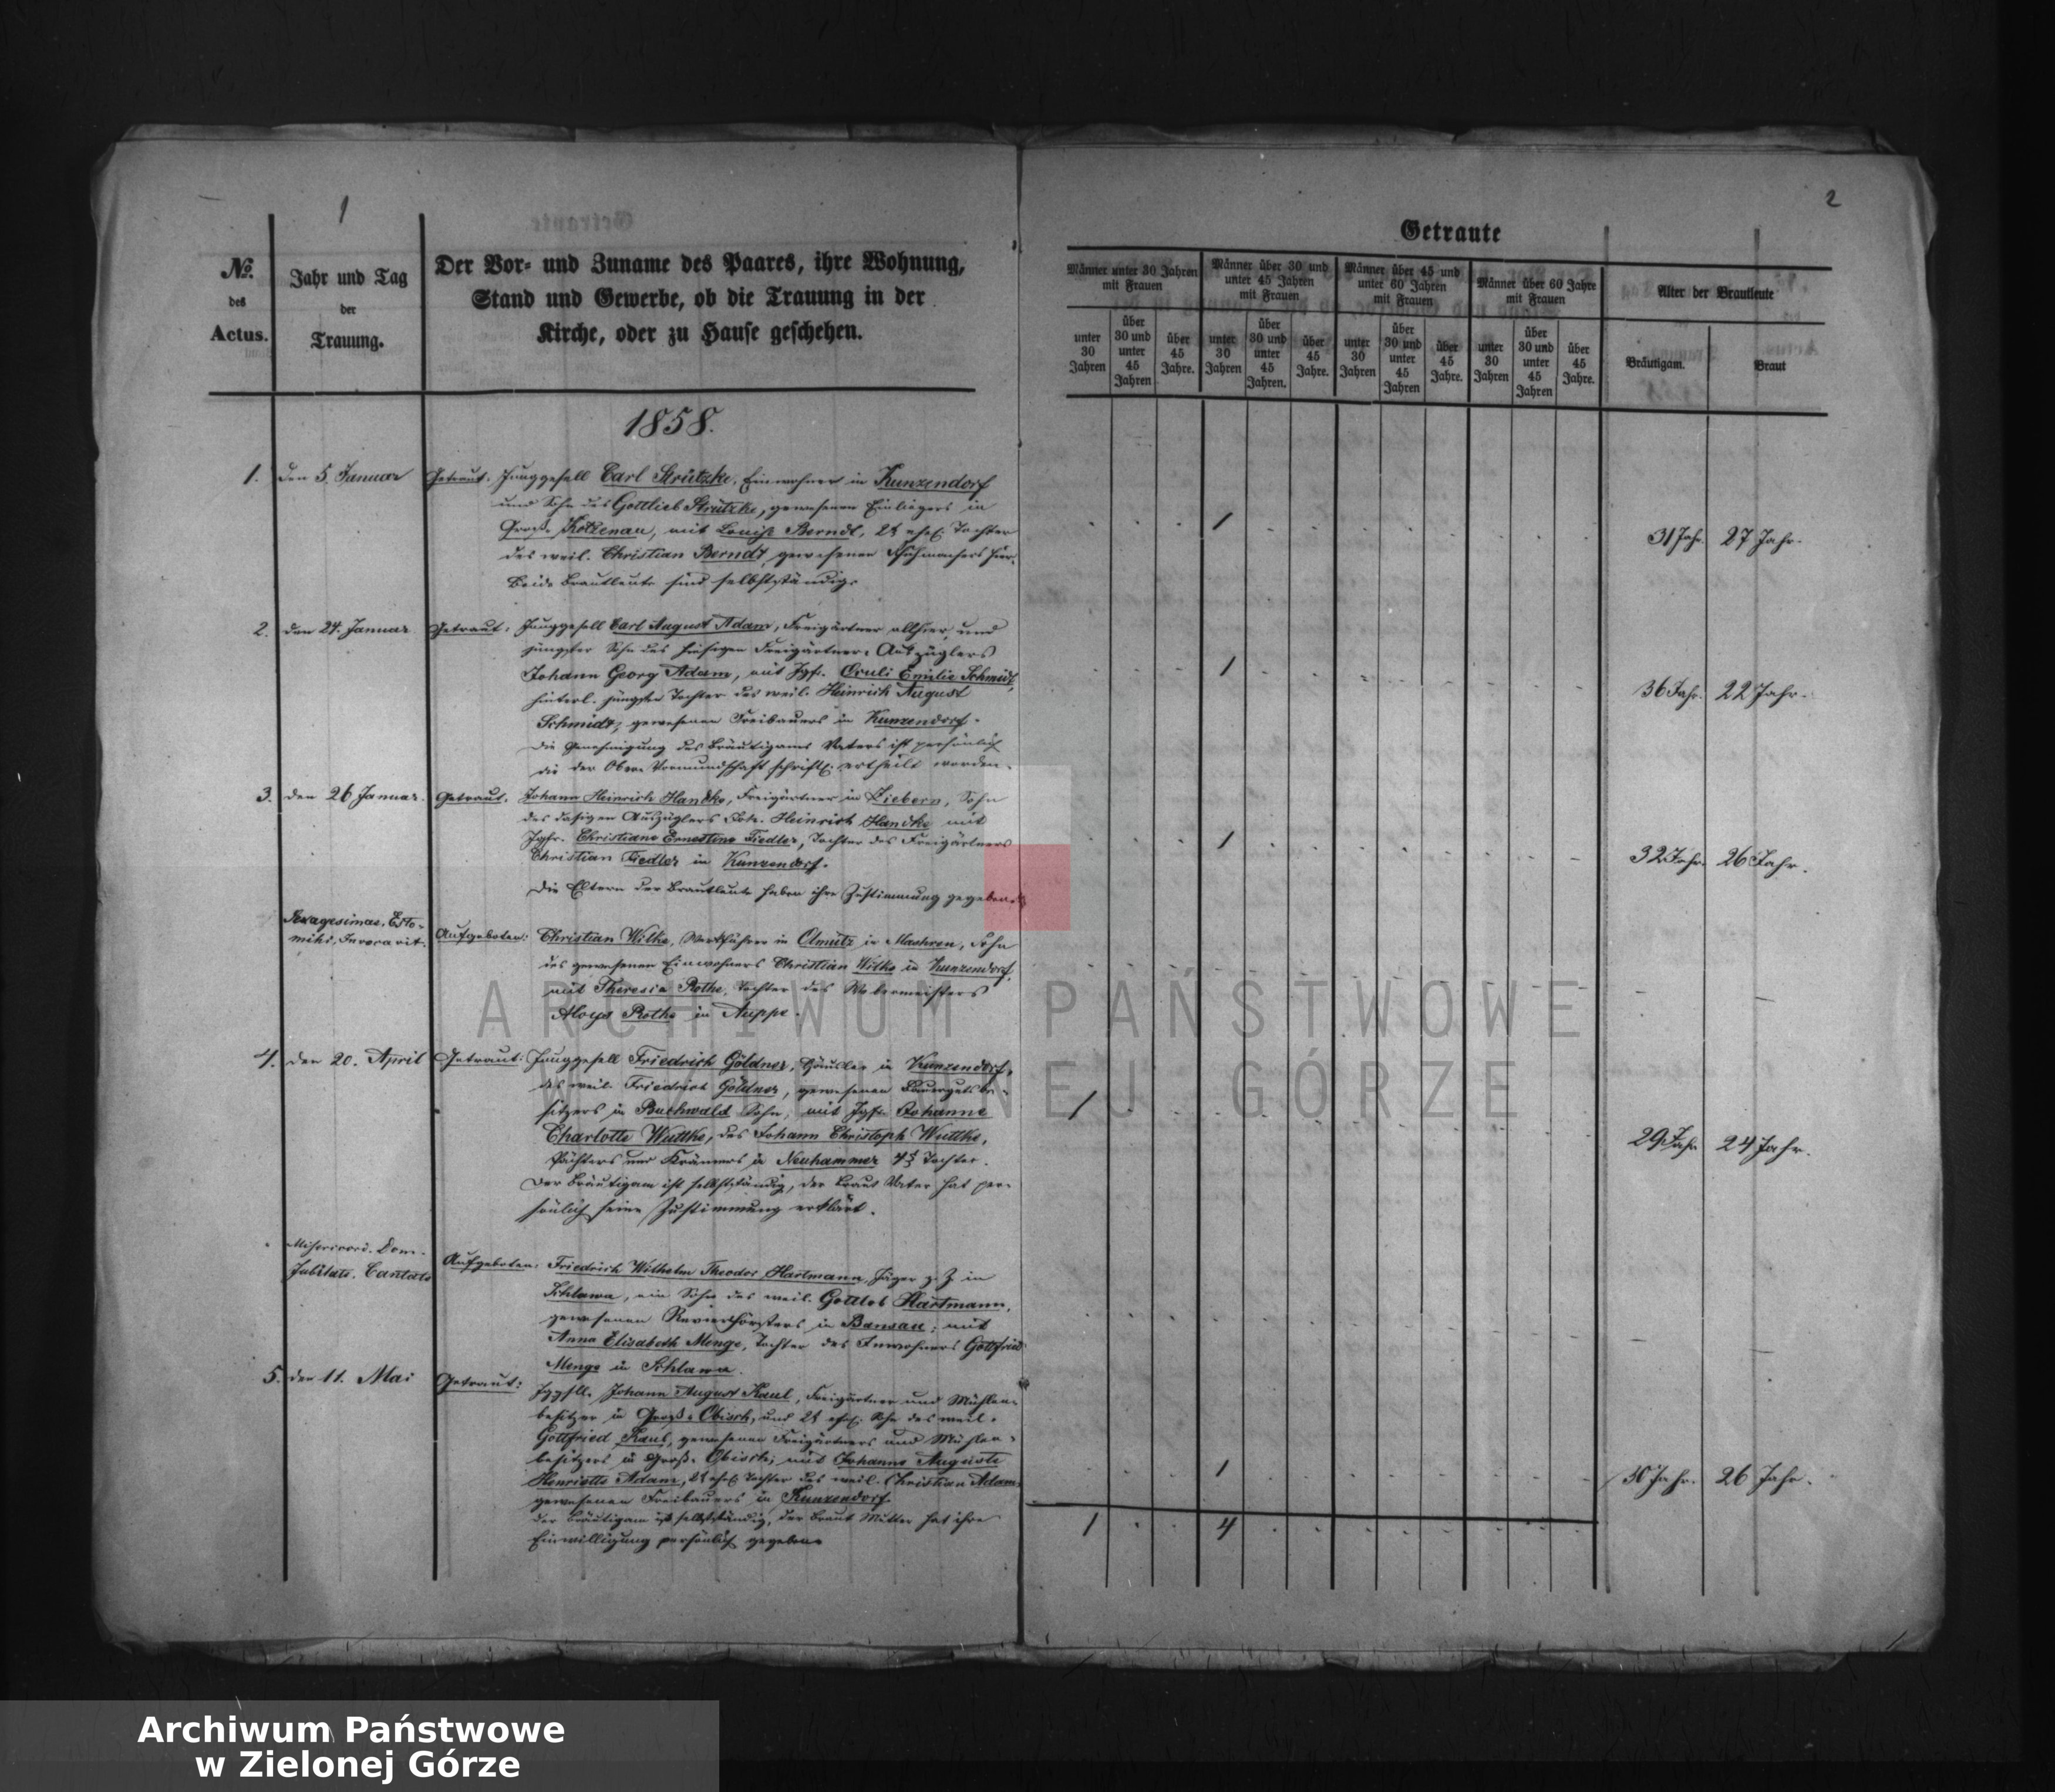 1
No.
des
Actus.
Jahr und Tag
der
Trauung.
Der Vor- und Zuname des Paares, ihre Wohnung,
Stand und Gewerbe, ob die Trauung in der
Kirche, oder zu Hause geschehen.
1858.
1. den 5. Januar Getraut. Junggesell Carl Strützke, Einwohner in Kunzendorf
und Sohn des Gottlieb Strützke, gewesenen Einliegers in
Groß- Kotzenau, mit Louise Berndt, 2t ehel. Tochter
des weil. Christian Berndt, gewesenen hier.
Beide Brautleute sind selbstständig.
2. den 24. Januar Getraut: Junggesell Carl August Adam, Freigärtner allhier, und
jüngster Sohn des hiesigen Freigärtner-Auszüglers
Johann Georg Adam, mit Jgfr. Emilie Schmidt,
hinterl. jüngste Tochter des weil. Heinrich August
Schmidt, gewesenen Freibauers in Kunzendorf.
Die Genehmigung des Bräutigams Vaters ist persönlich
die der Ober-Vormundschaft schriftl. ertheilt worden.
3. den 26 Januar. Getraut. Johann Heinrich Handke, Freigärtner in Ziebern, Sohn
des dasigen Auszüglers Heinrich Handke mit
Jgfr. Christiane Ernestine Fiedler, Tochter des Freigärtners
Christian Fiedler in Kunzendorf.
Die Eltern der Brautleute haben ihre Zustimmung gegeben.
Sexagesimae, Esto-
mihi, Invocavit. Aufgeboten: Christian Wilke, Werkführer in Olmütz in Maehren, Sohn
des gewesenen Einwohners Christian Wilke in Kunzendorf,
mit Theresia Rothe, Tochter des Webermeisters
Aloys Rothe in
4. den 20. April Getraut: Junggesell Friedrich Göldner, Häusler in Kunzendorf,
des weil. Friedrich Göldner, gewesenen Bauergutsbe-
sitzers in Buchwald Sohn, mit Jgfr. Johanne
Charlotte Wuttke, des Johann Christoph Wuttke,
Pächters und Krämers in Neuhammer Tochter.
Der Bräutigam ist selbstständig, der Braut Vater hat per-
sönlich seine Zustimmung erklärt.
Misericord. Dom.
Jubilate. Cantate Aufgeboten: Friedrich Wilhelm Theodor Hartmann, Jäger z. Z. in
Schlawa, ein Sohn des weil. Gottlob Hartmann,
gewesenen Revierförsters in Bansau; mit
Anna Elisabeth Menge, Tochter des Inwohners Gottfried
Menge in Schlawa.
5. den 11. Mai Getraut: Jggsll. Johann August Kaul, Freigärtner und Mühlen-
besitzer in Groß-Obisch, und 2t ehel. Sohn des weil.
Gottfried Kaul, gewesenen Freigärtners und Mühlen-
besitzers in Groß-Obisch; mit Johanne Auguste
Henriette Adam, 2t ehel. Tochter des weil. Christian Adam,
gewesenen Freibauers in Kunzendorf.
Der Bräutigam ist selbstständig, der Braut Mutter hat ihre
Einwilligung persönlich gegeben.
2
Getraute
Männer unter 30 Jahren
mit Frauen
Männer über 30 und
unter 45 Jahren
mit Frauen
Männer über 45 und
unter 60 Jahren
mit Frauen
Männer über 60 Jahre
mit Frauen
Alter der Brautleute
unter
30
Jahren
über
30 und
unter
45
Jahren
über
45
Jahre.
unter
30
Jahren
über
30 und
unter
45
Jahren.
über
45
Jahre.
unter
30
Jahren
über
30 und
unter
45
Jahren
über
45
Jahre.
unter
30
Jahren
über
30 und
unter
45
Jahren
über
45
Jahre.
Bräutigam.
Braut
1 31 Jahr. 27 Jahr.
1 36 Jahr. 22 Jahr.
1 32 Jahr. 26 Jahr.
1 29 Jahr 24 Jahr.
1 30 Jahr. 26 Jahr.
1 4
ARCHIWUM PAŃSTWOWE
W ZIELONEJ GÓRZE
Archiwum Państwowe
w Zielonej Górze